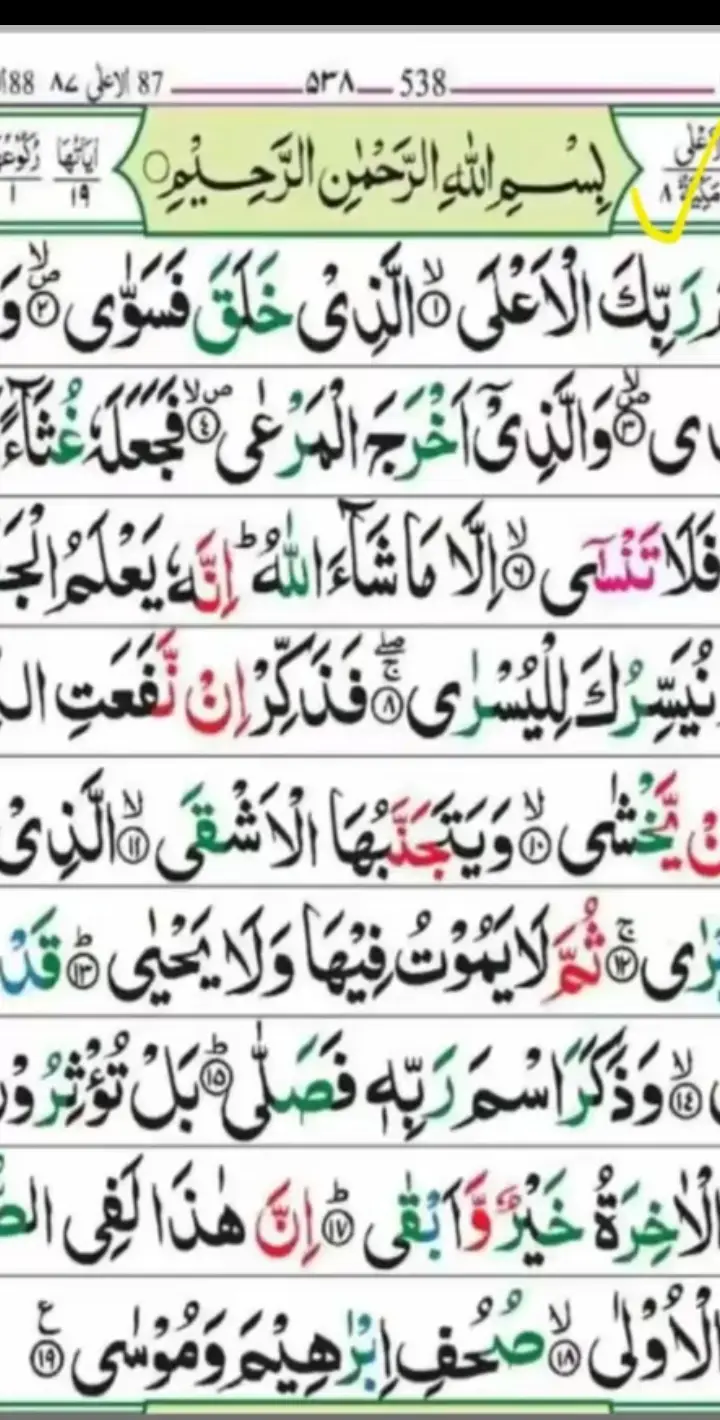 87 الاعلی ٨٧ 538 ٥٣٨ 88
اٰیَاتُهَا ١٩ رُكُوْعُهَا ١
بِسْمِ اللّٰهِ الرَّحْمٰنِ الرَّحِیْمِ
رَبِّكَ الْاَعْلَى ۙ﴿۱﴾ الَّذِیْ خَلَقَ فَسَوّٰى ۪ۙ﴿۲﴾ وَ
وَالَّذِیْۤ اَخْرَجَ الْمَرْعٰى ۪ۙ﴿۴﴾ فَجَعَلَهٗ غُثَآءً
فَلَا تَنْسٰۤى ۙ﴿۶﴾ اِلَّا مَا شَآءَ اللّٰهُ ؕ اِنَّهٗ یَعْلَمُ
نُیَسِّرُكَ لِلْیُسْرٰى ۚۖ﴿۸﴾ فَذَكِّرْ اِنْ نَّفَعَتِ
یَّخْشٰى ۙ﴿۱۰﴾ وَیَتَجَنَّبُهَا الْاَشْقَى ۙ﴿۱۱﴾ الَّذِیْ
ۚ﴿۱۲﴾ ثُمَّ لَا یَمُوْتُ فِیْهَا وَلَا یَحْیٰى ؕ﴿۱۳﴾ قَدْ
ۙ﴿۱۴﴾ وَذَكَرَ اسْمَ رَبِّهٖ فَصَلّٰى ؕ﴿۱۵﴾ بَلْ
الْاٰخِرَةُ خَیْرٌ وَّاَبْقٰى ؕ﴿۱۷﴾ اِنَّ هٰذَا لَفِی
الْاُوْلٰى ۙ﴿۱۸﴾ صُحُفِ اِبْرٰهِیْمَ وَمُوْسٰى ﴿۱۹﴾ ع